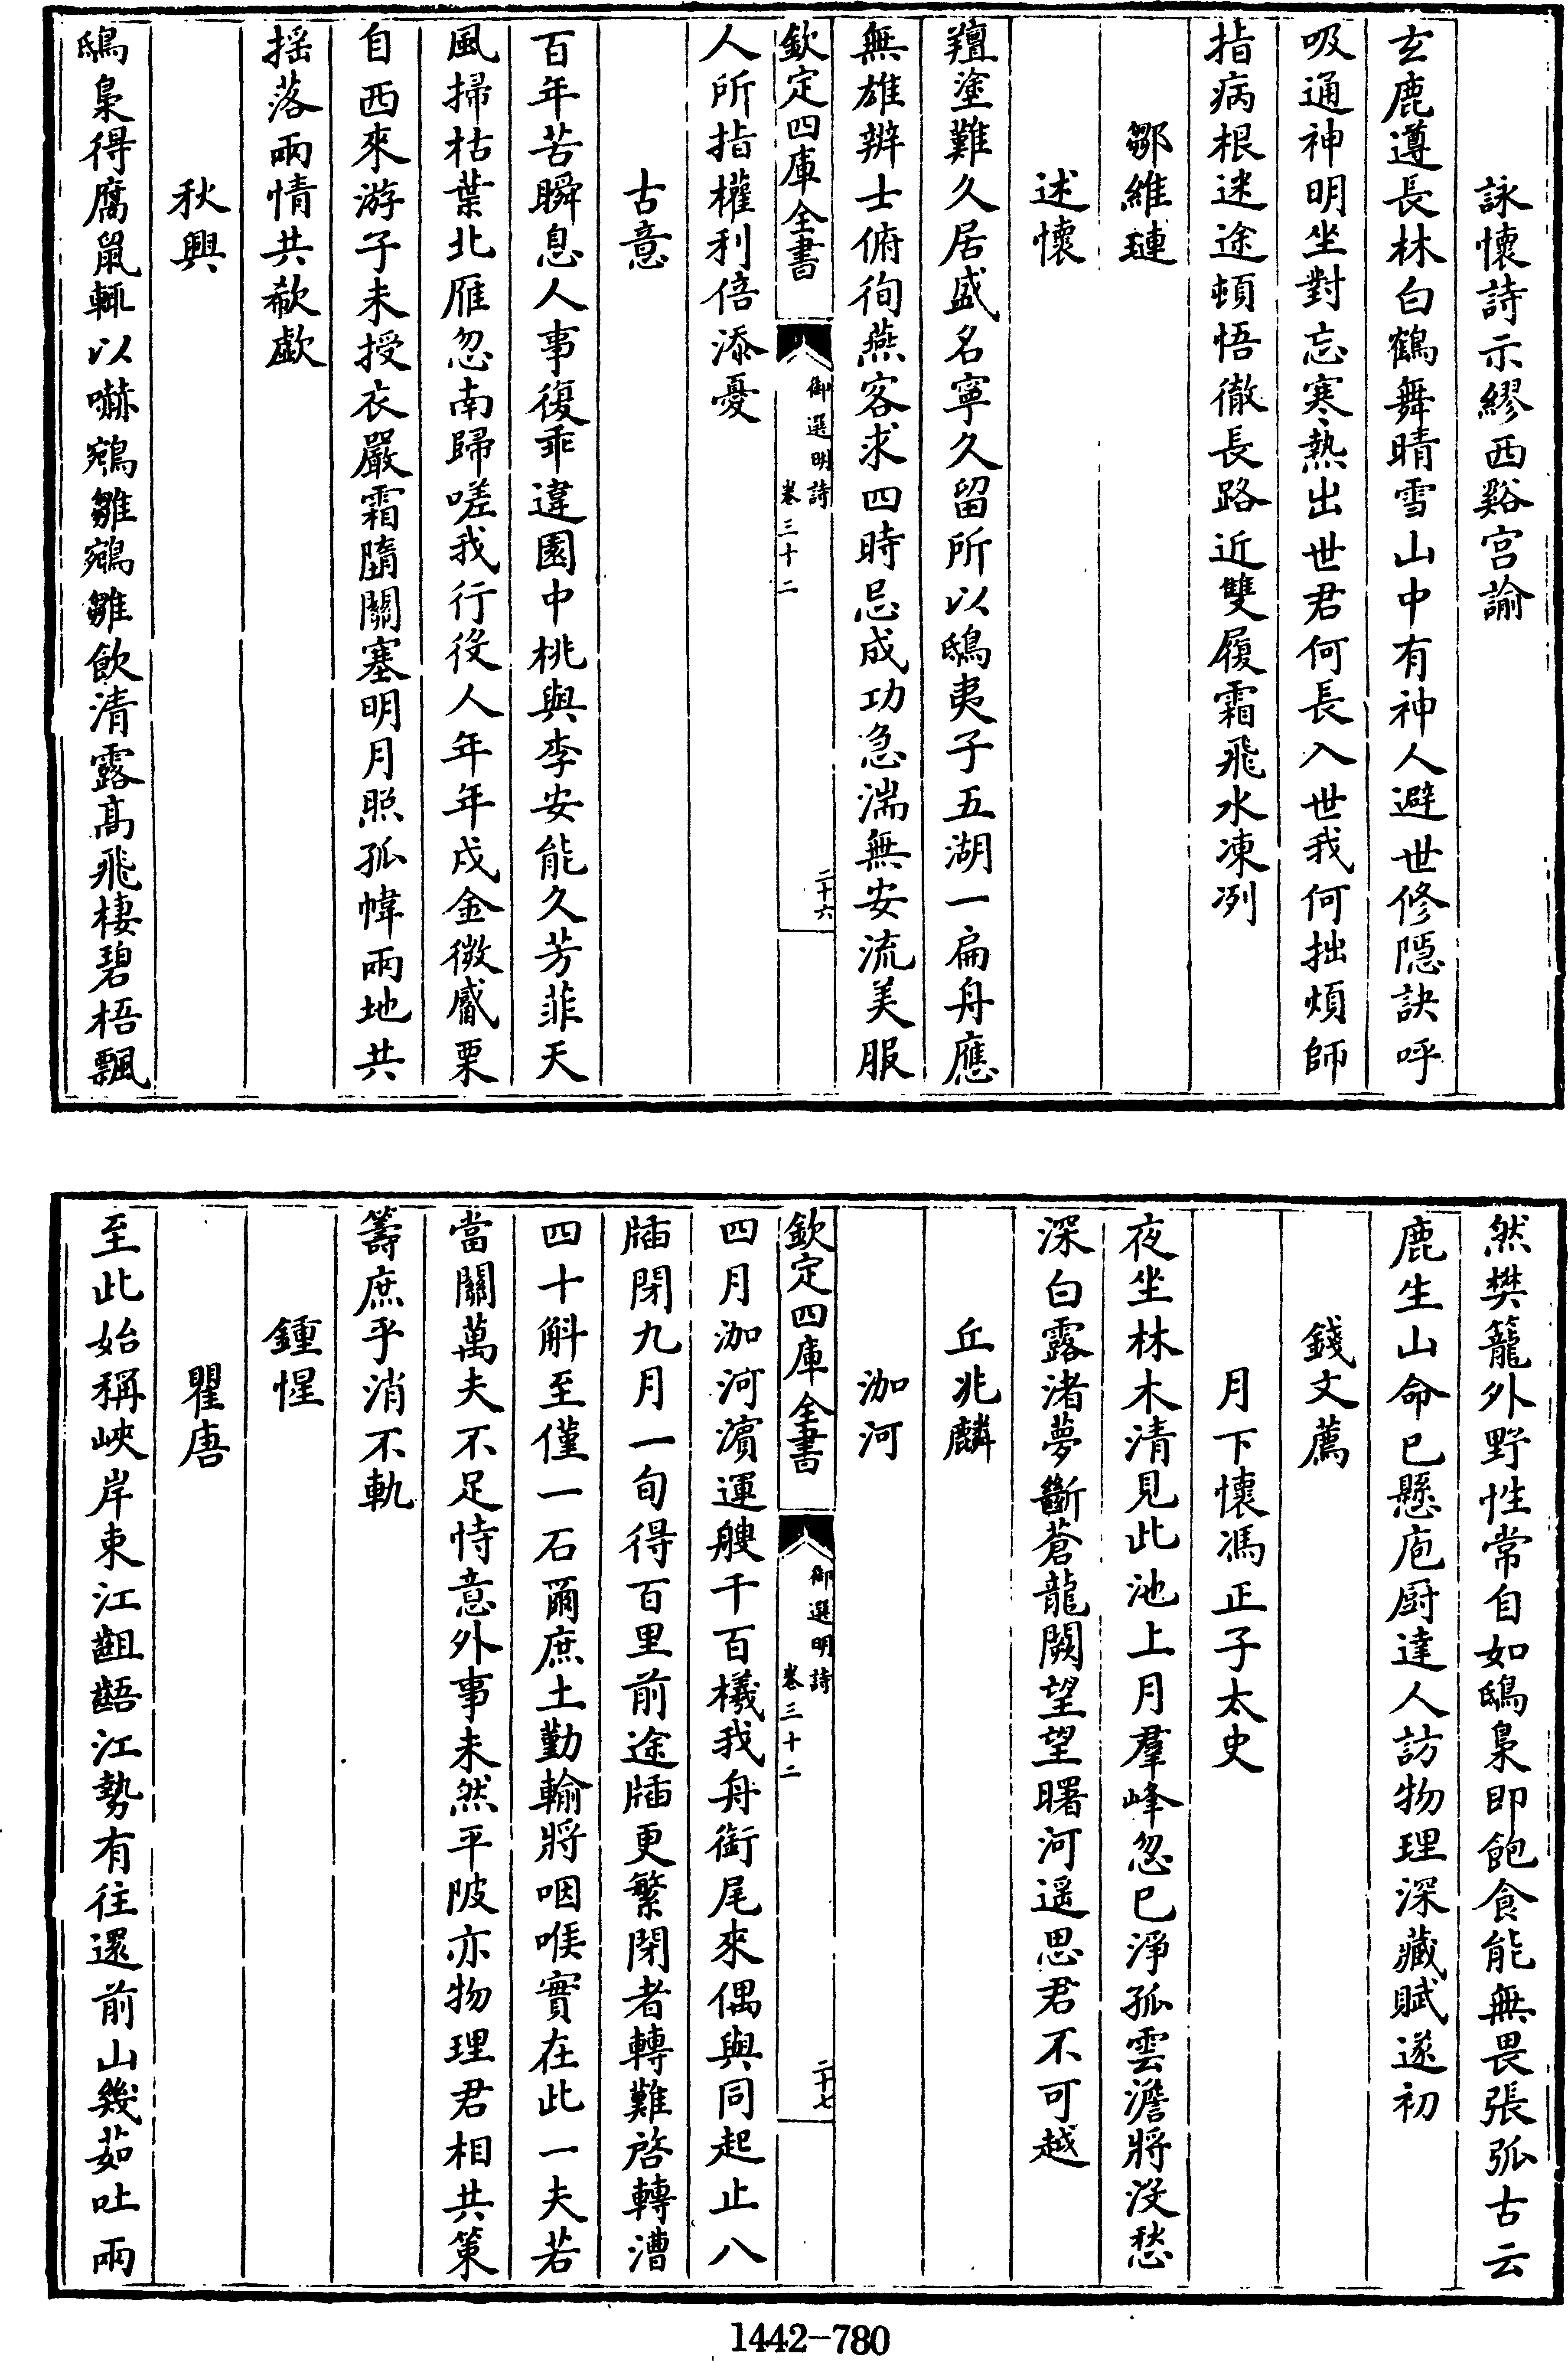 詠懷詩示繆西谿宫諭
玄鹿遵長林白鶴舞晴雪山中有神人避世修隱訣呼
吸通神明坐對忘寒熱出世君何長入世我何拙煩師
指病根迷途頓悟徹長路近雙履霜飛水凍冽
鄒維璉
述懷
羶塗難久居盛名寧久留所以鴟夷子五湖一扁舟應
無雄辨士俯徇燕客求四時忌成功急湍無安流美服
欽定四庫全書
御選明詩
卷三十二
二十六
人所指權利倍添憂
古意
百年苦瞬息人事復乖違園中桃與李安能久芳菲天
風掃枯葉北雁忽南歸嗟我行役人年年戍金微觱栗
自西來游子未授衣嚴霜隕關塞明月照孤幃兩地共
摇落兩情共欷歔
秋興
鴟梟得腐鼠輒以嚇鵷雛鵷雛飲清露高飛棲碧梧飄
然樊籠外野性常自如鴟梟即飽食能無畏張弧古云
鹿生山命已懸庖厨達人訪物理深藏賦遂初
錢文薦
月下懷馮正子太史
夜坐林木清見此池上月羣峰忽已淨孤雲澹將没愁
深白露渚夢斷蒼龍闕望望曙河遥思君不可越
丘兆麟
泇河
欽定四庫全書
御選明詩
卷三十二
二十七
四月泇河濱運艘千百檥我舟銜尾來偶與同起止八
牐閉九月一旬得百里前途牐更繁閉者轉難啓轉漕
四十斛至僅一石爾庶土勤輸將咽喉實在此一夫若
當關萬夫不足恃意外事未然平陂亦物理君相共策
籌庶乎消不軌
鍾惺
瞿唐
至此始稱峽岸束江齟齬江勢有往還前山幾茹吐兩
1442-780